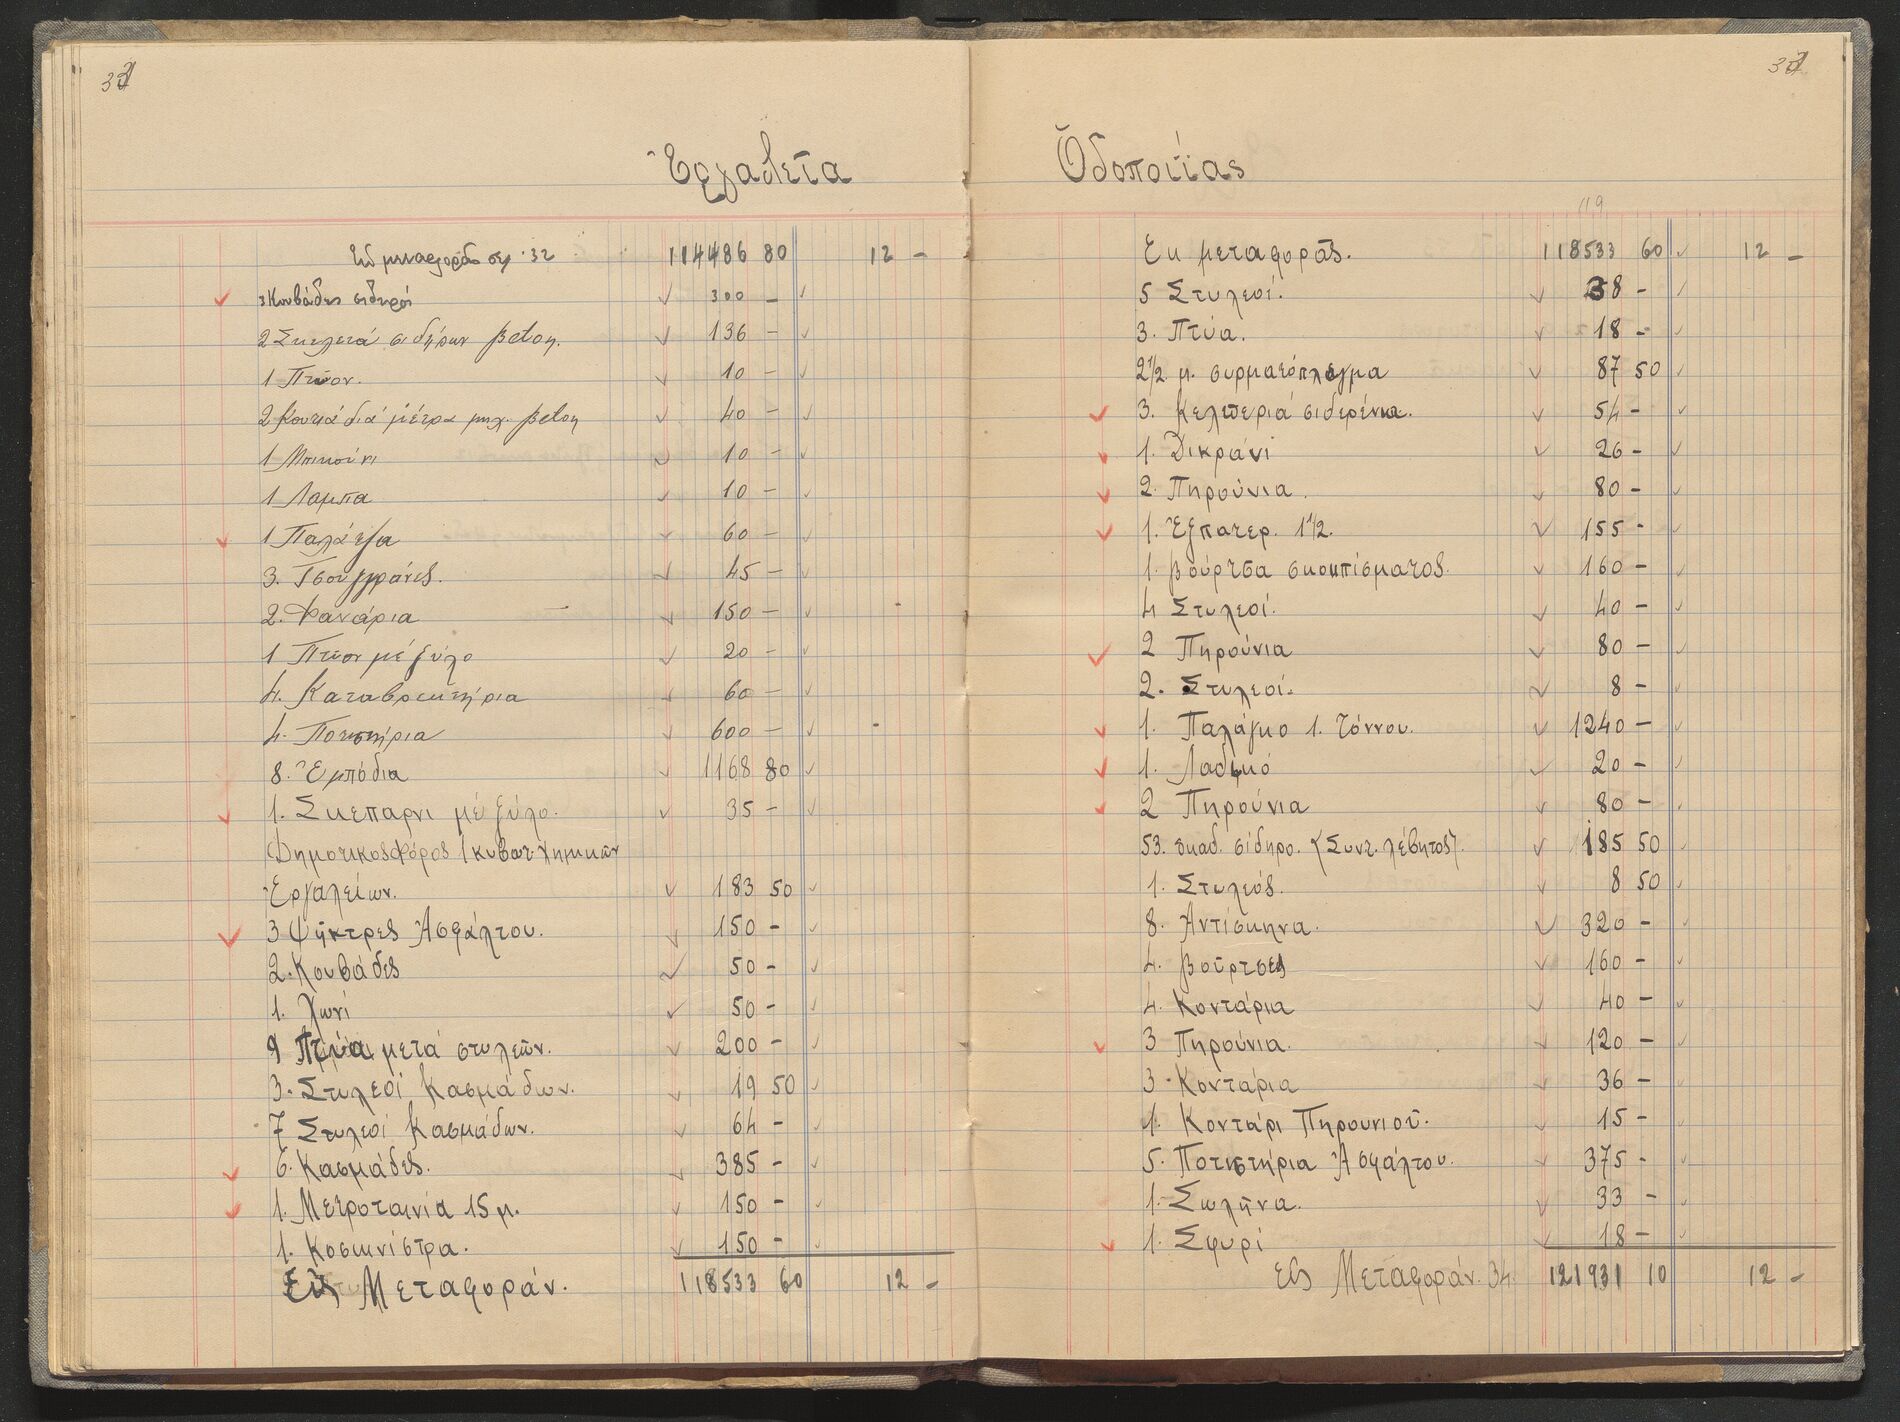 33
Ἐργαλεῖα
Ἐκ μεταφορᾶς σελ. 32 114486 80 12 –
3 Κουβάδες σιδηροί 300 –
2 Σκελετά σιδήρων βetoη. 136 –
1 Πτύον. 10 –
2 Κουτιά διά μέτρα μηχ. βetoη 40 –
1 Μπικούνι 10 –
1 Λαμπα 10 –
1 Παλάγγα 60 –
3. Τσουγγράνες. 45 –
2. Φανάρια 150 –
1 Πτύον μέ ξύλο 20 –
4. Καταβρεκτήρια 60 –
4. Ποτιστήρια 600 –
8. Ἐμπόδια 1168 80
1. Σκεπαρνι μέ ξύλο. 35 –
Δημοτικος Φόρος 1 κυβωτ. λημικῶν
Ἐργαλείων. 183 50
3 Ψῆκτρες Ἀσφάλτου. 150 –
2. Κουβάδες 50 –
1. Χωνί 50 –
9 Πτύα μετά στυλεῶν. 200 –
3. Στυλεοί Κασμάδων. 19 50
7 Στυλεοί Κασμάδων. 64 –
6. Κασμάδες. 385 –
1. Μετροταινία 15 μ. 150 –
1. Κοσκινίστρα. 150 –
Εἰς Μεταφοράν. 118533 60 12 –
Ὁδοποιΐας
119
Εκ μεταφορᾶς. 118533 60 12 –
5 Στυλεοί. 38 –
3. Πτύα. 18 –
2 1/2 μ. συρματόπλεγμα 87 50
3. Κελεπεριά σιδερένια. 54 –
1. Δικράνι 26 –
2. Πηρούνια. 80 –
1. Ἐξπατερ. 1 1/2. 155 –
1. βούρτσα σκουπίσματος. 160 –
4 Στυλεοί. 40 –
2 Πηρούνια 80 –
2. Στυλεοί. 8 –
1. Παλάγκο 1. τόννου. 1240 –
1. Λαδικό 20 –
2 Πηρούνια 80 –
53. οκαδ. σίδηρο. (Συντ. λέβητος). 185 50
1. Στυλεός. 8 50
8. Αντίσκηνα. 320 –
4. βούρτσες 160 –
4. Κοντάρια 40 –
3 Πηρούνια. 120 –
3 Κοντάρια 36 –
1. Κοντάρι Πηρουνιοῦ. 15 –
5. Ποτιστήρια Ἀσφάλτου. 375 –
1. Σωλῆνα. 33 –
1. Σφυρί 18 –
Εἰς Μεταφοράν. 34 121931 10 12 –